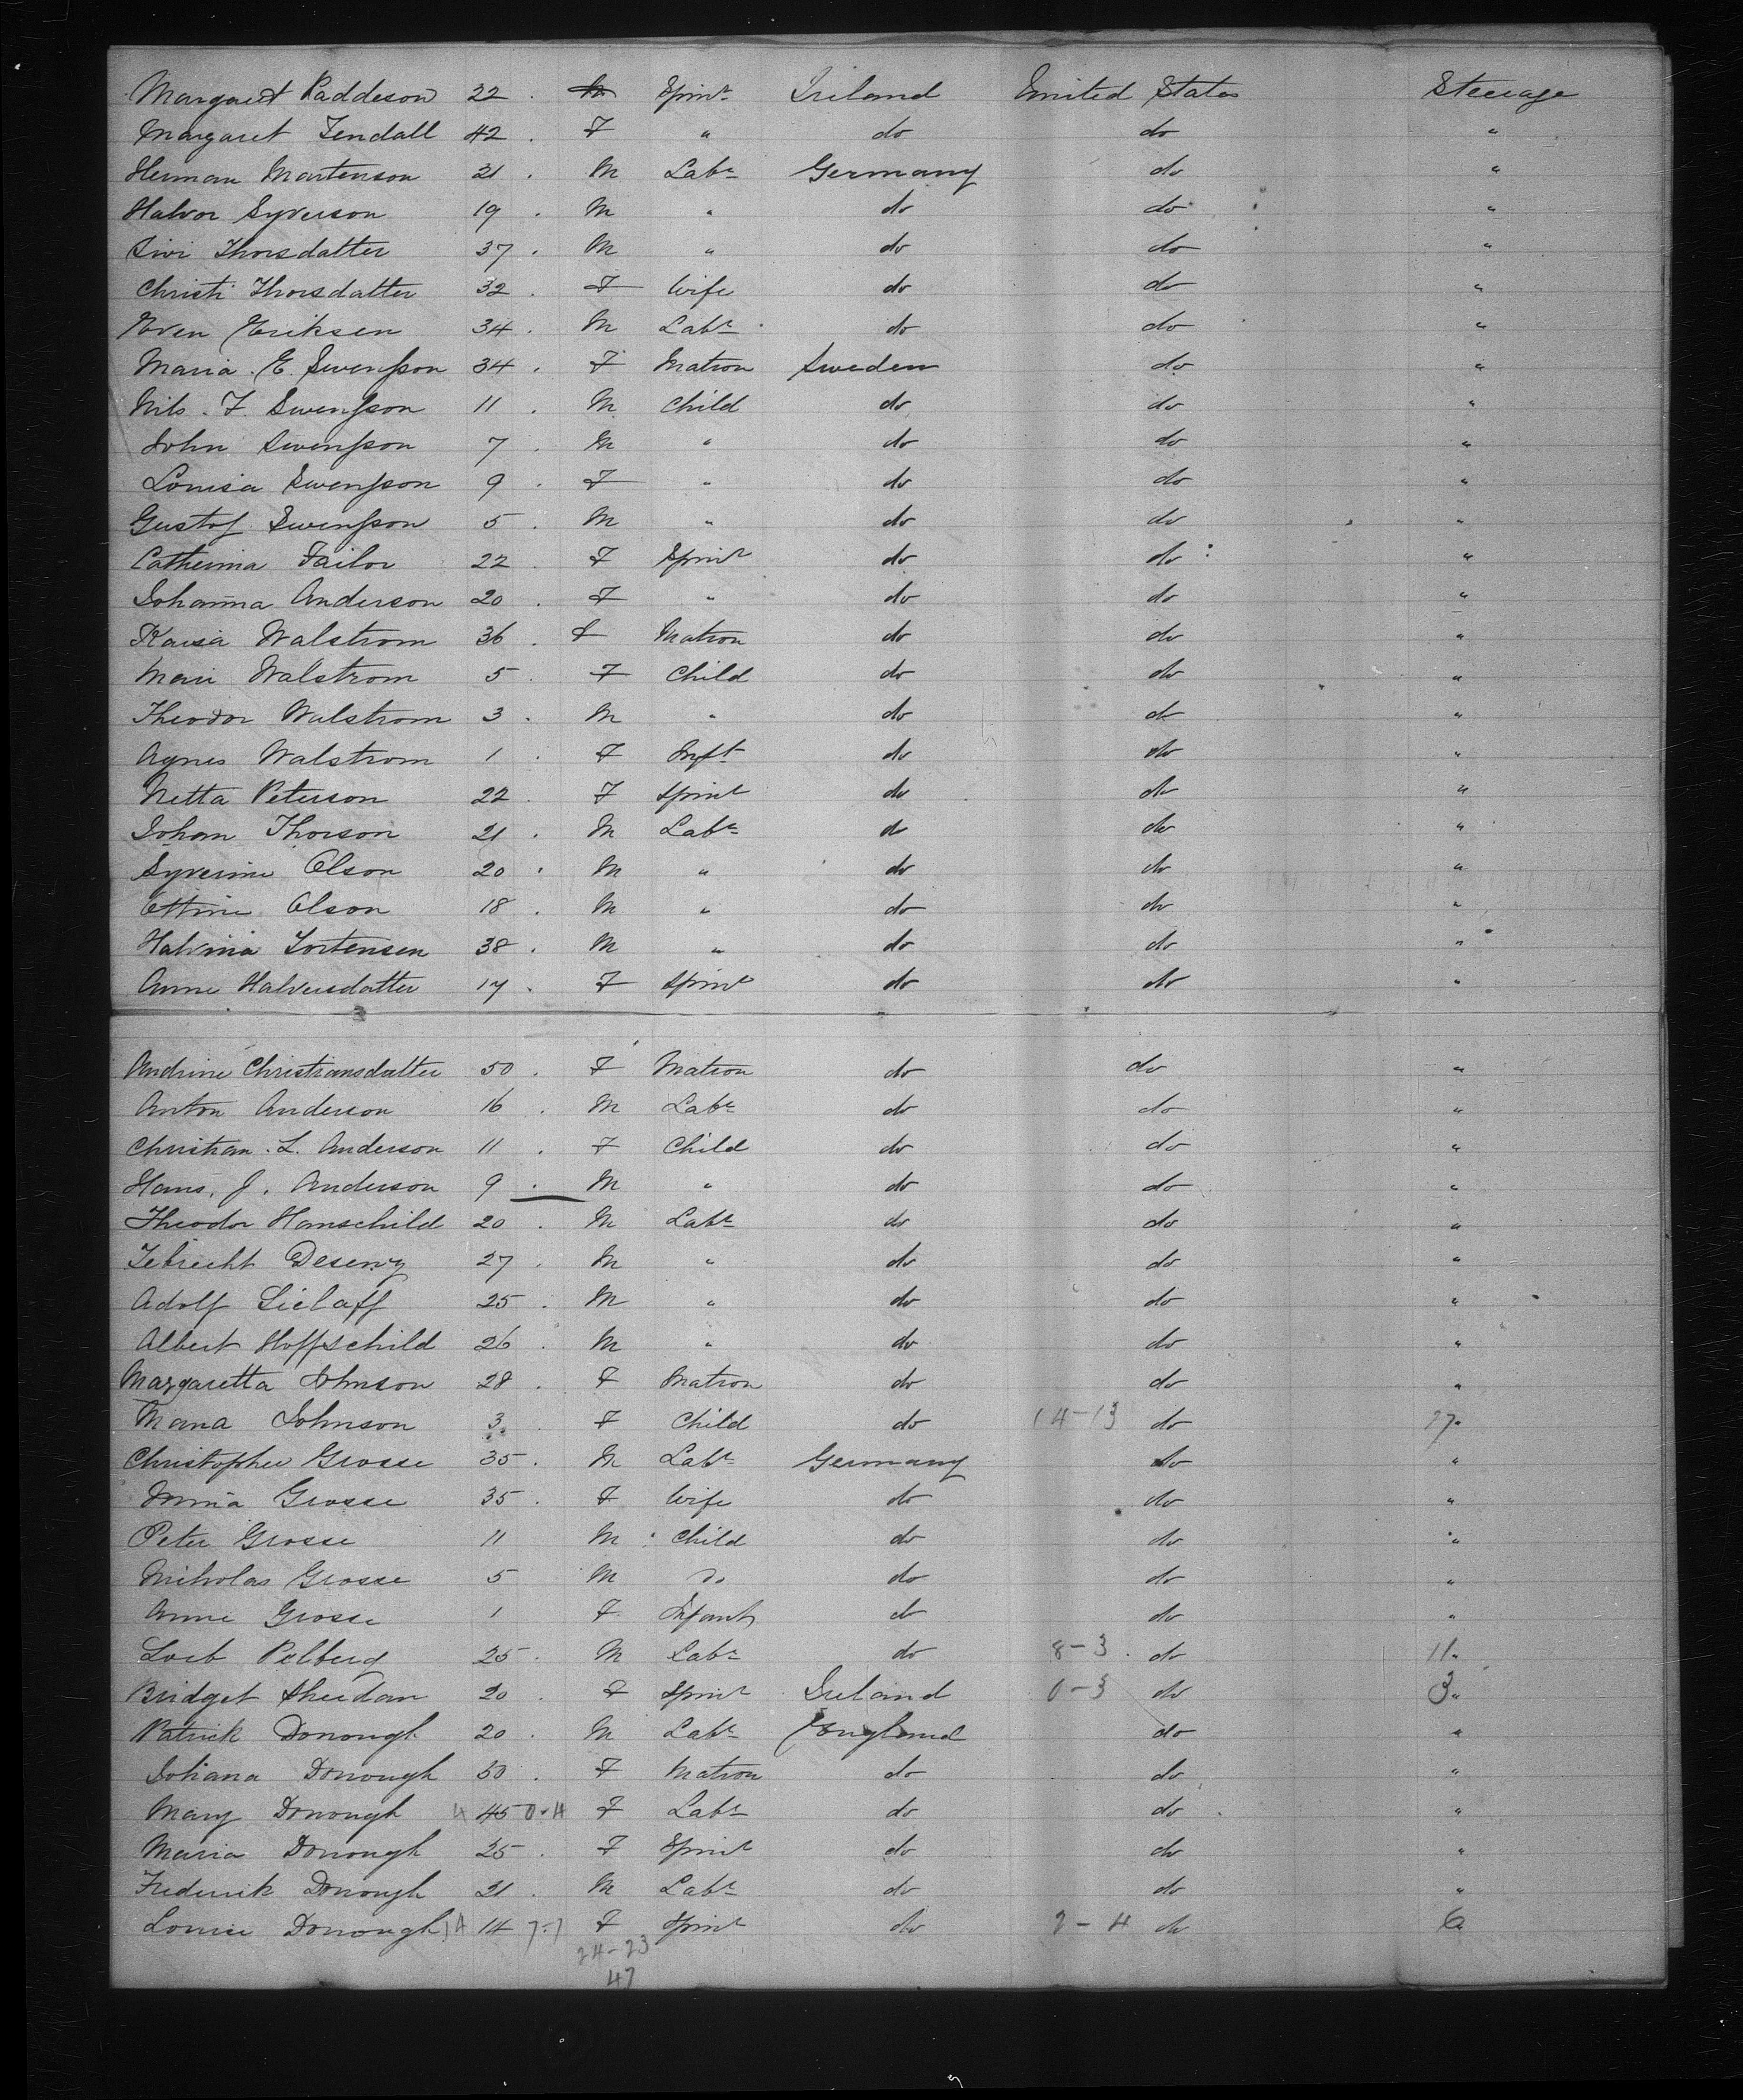 Margaret Raddeson 22 M Spinr Ireland United States Steerage
Margaret Tendall 42 F " do do "
Herman Martenson 21 M Labr Germany do "
Halvor Syverson 19 M " do do "
Sivi Thorsdatter 37 M " do do "
Christi Thorsdatter 32 F Wife do do "
Even Eriksen 34 M Labr do do "
Maria E. Swensson 34 F Matron Sweden do "
Nils. F. Swensson 11 M Child do do "
John Swensson 7 M " do do "
Louisa Swensson 9 F " do do "
Gustof Swensson 5 M " do do "
Catherina Failor 22 F Spinr do do "
Johanna Anderson 20 F " do do "
Kaisa Walstrom 36 F Matron do do "
Mari Walstrom 5 F Child do do "
Theodor Walstrom 3 M " do do "
Agnes Walstrom 1 F Inft do do "
Netta Peterson 22 F Spinr do do "
Johan Thorson 21 M Labr do do "
Syverine Olson 20 M " do do "
Olson 18 M " do do "
Halvina Tortensen 38 M " do do "
Anne Halversdatter 17 F Spinr do do "
Andrine Christiansdatter 50 F Matron do do "
Anton Anderson 16 M Labr do do "
Christian. L. Anderson 11 F Child do do "
Hans. J. Anderson 9 M " do do "
Theodor Hamschild 20 M Labr do do "
Deseny 27 M " do do "
Adolf Lielaff 25 M " do do "
Albert Hoffschild 26 M " do do "
Margaretta Johnson 28 F Matron do do "
Maria Johnson 3 F Child do 14-13 do 27"
Christopher Grosse 35 M Labr Germany do "
Minna Grosse 35 F Wife do do "
Peter Grosse 11 M Child do do "
Nicholas Grosse 5 M Do do do "
Anne Grosse 1 F Infant do do "
Loeb Pelberg 25 M Labr do 8-3 do 11"
Bridget Sheridan 20 F Spinr Ireland 0-3 do 3"
Patrick Donough 20 M Labr England do "
Johana Donough 50 F Matron do do "
Mary Donough 4 45 0-4 F Labr do do "
Maria Donough 25 F Spinr do do "
Frederick Donough 21 M Labr do do "
Louise Donough 14 14 7-7 F Spinr do 2-4 do 6
24-23
47